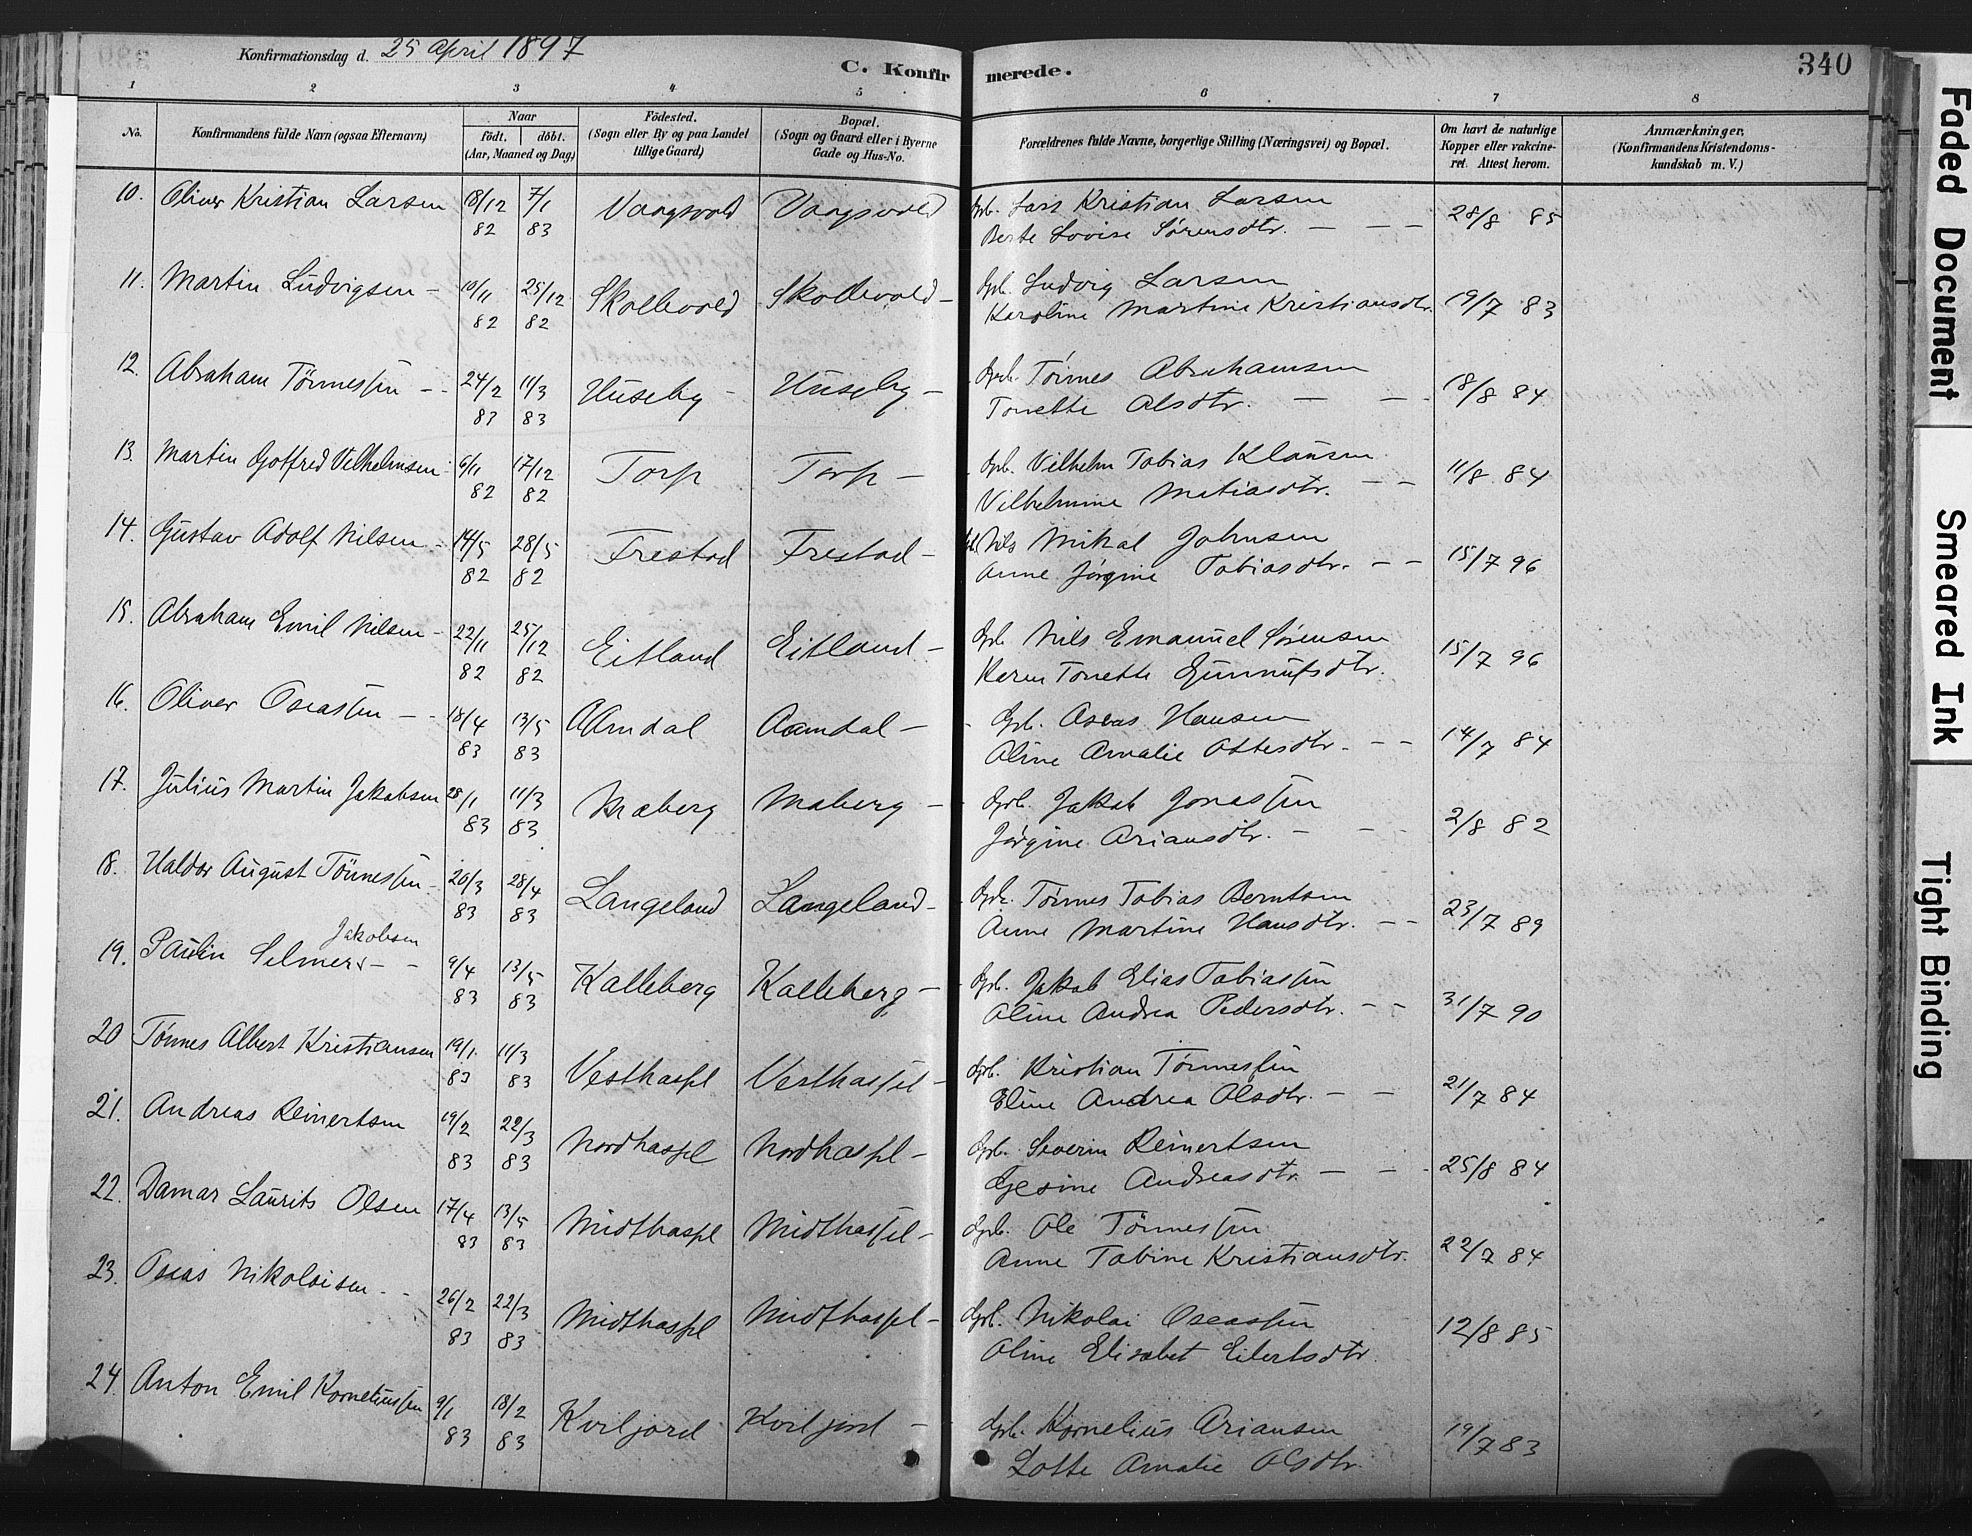 Konfirmationsdag d. 25 April 1897
C. Konfirmerede.
340
1 2 3 4 5 6 7 8
No.
Konfirmandens fulde Navn (ogsaa Efternavn)
Naar
födt. döbt.
(Aar, Maaned og Dag)
Födested.
(Sogn eller By og paa Landet tillige Gaard)
Bopæl.
(Sogn og Gaard eller i Byerne Gade og Hus-No.
Forældrenes fulde Navne, borgerlige Stilling (Næringsvei) og Bopæl.
Om havt de naturlige Kopper eller vakcineret. Attest herom.
Anmærkninger.
(Konfirmandens Kristendomskundskab m. V.)
10. Oliver Kristian Larsen 18/12 82 7/1 83 Vaagsvold Vaagsvold Gbr. Lars Kristian Larsen
Berte Lovise Sørensdtr. — — — 28/8 85
11. Martin Ludvigsen – 10/11 82 25/12 82 Skollevold Skollevold – Gbr. Ludvig Larsen
Karoline Martine Kristiansdtr. 19/7 83
12. Abraham Tönnessen – – 24/2 83 11/3 83 Huseby – Huseby – Gbr. Tönnes Abrahamsen
Tonette Olsdtr. — — – 18/8 84
13. Martin Gotfred Vilhelmsen 6/11 82 17/12 82 Torp Torp – Gbr. Vilhelm Tobias Klausen
Vilhelmine Matiasdtr. – – 11/8 84
14. Gustav Adolf Nilsen – 14/5 82 28/5 82 Frestad Frestad – Gbr. Nils Mikal Johnsen
Anne Jörgine Tobiasdtr. – – 15/7 96
15. Abraham Emil Nilsen – 22/11 82 25/12 82 Eitland Eitland – Gbr. Nils Emanuel Sörensen
Karen Tonette Gunnufsdtr. 15/7 96
16. Oliver Oseassen – – 18/4 83 13/5 83 Aamdal Aamdal – Gbr. Oseas Hansen
Aline Amalie Ottesdtr. – – 14/7 84
17. Julius Martin Jakobsen 28/1 83 11/3 83 Maberg Maberg – Gbr. Jakob Jonassen
Jörgine Ariansdtr. – – – 2/8 82
18. Haldor August Tönnessen – 20/3 83 28/4 83 Langeland Langeland – Gbr. Tönnes Tobias Berntsen
Anne Martine Hansdtr. – – 23/7 89
Jakobsen
19. Paulin Selmer – – 9/4 83 13/5 83 Kalleberg Kalleberg – Gbr. Jakob Elias Tobiassen
Aline Andrea Pedersdtr. – – 31/7 90
20 Tönnes Albert Kristiansen 19/1 83 11/3 83 Vesthassel Vesthassel – Gbr. Kristian Tönnessen
Eline Andrea Olsdtr. – – 21/7 84
21. Andreas Reinertsen 19/2 83 22/3 83 Nordhassel Nordhassel – Gbr. Severin Reinertsen
Gesine Andreasdtr. – – – 25/8 84
22. Damar Laurits Olsen 17/4 83 13/5 83 Midthassel Midthassel – Gbr. Ole Tönnessen
Anne Tobine Kristiansdtr. 22/7 84
23. Oseas Nikolaisen – – 26/2 83 22/3 83 Midthassel Midthassel – Gbr. Nikolai Oseassen
Aline Elisabet Eilertsdtr. 12/8 85
24. Anton Emil Korneliussen 9/1 83 18/2 83 Kviljord Kviljord – Gbr. Kornelius Ariansen
Lotte Amalie Olsdtr. 19/7 83
Faded Document
Smeared Ink
Tight Binding